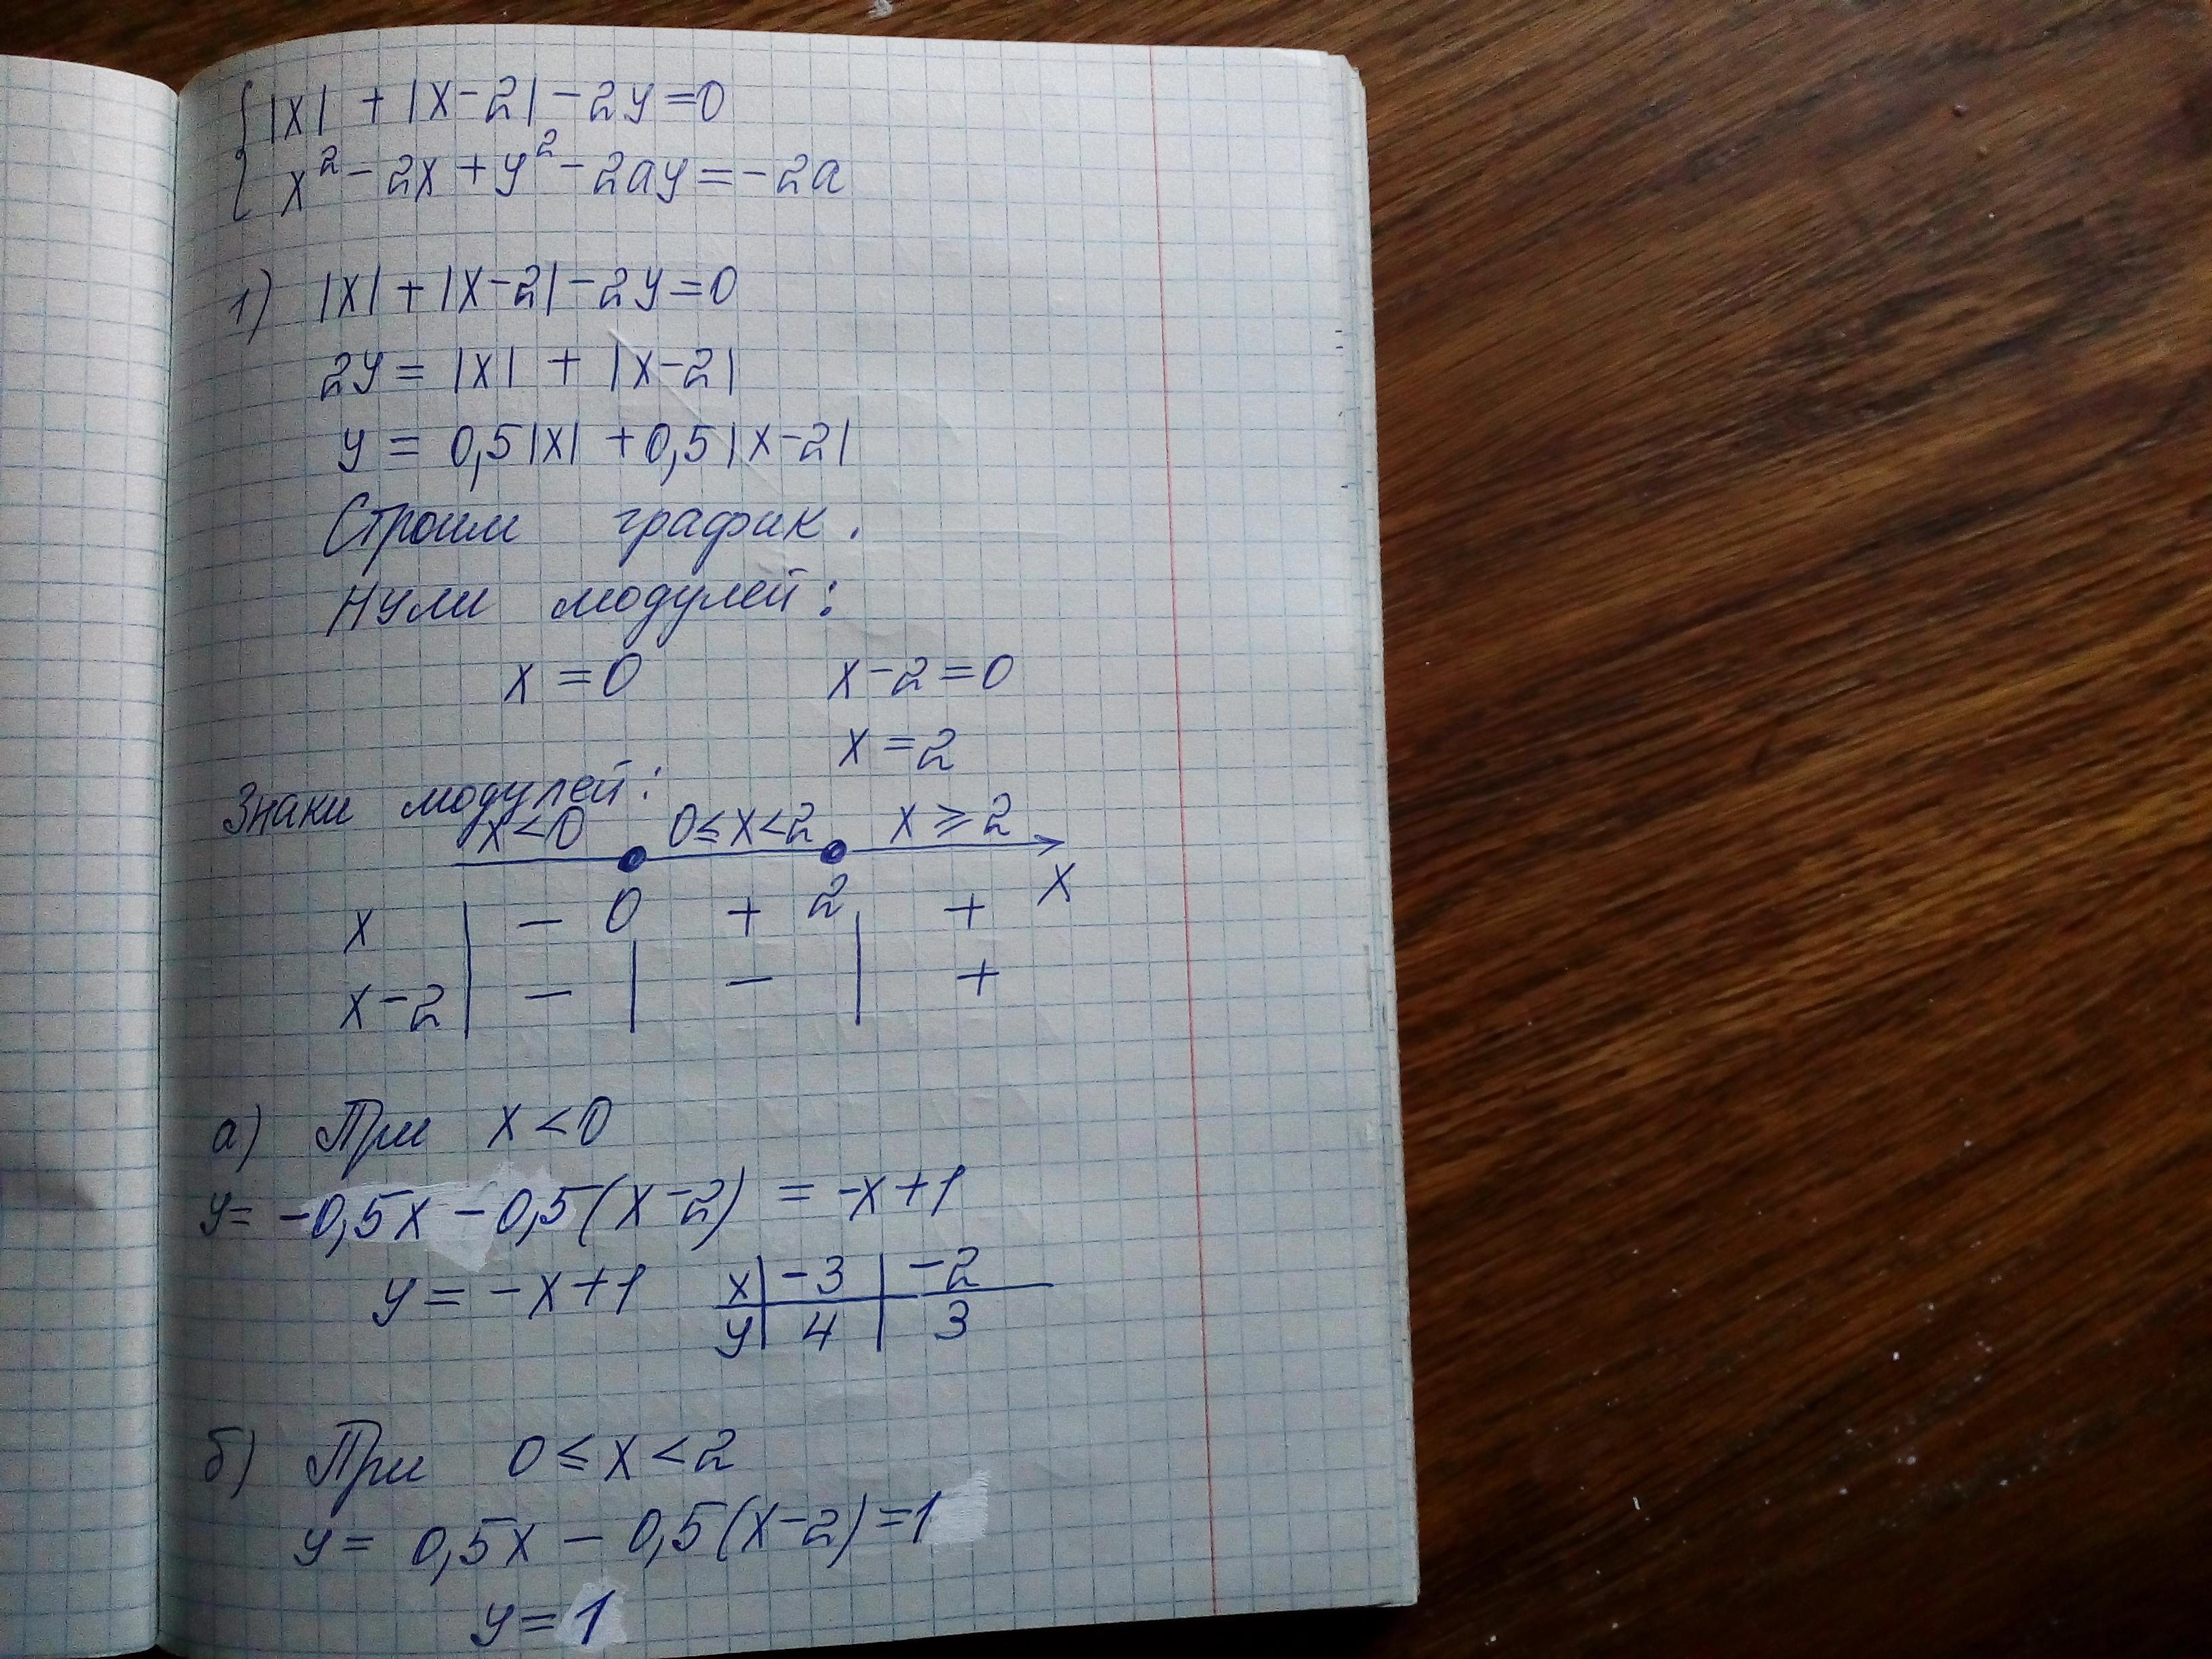 { |x| + |x-2| - 2y = 0
x² - 2x + y² - 2ay = -2a
1) |x| + |x-2| - 2y = 0
2y = |x| + |x-2|
y = 0,5|x| + 0,5|x-2|
Строим график.
Нули модулей:
x = 0 x-2 = 0
x = 2
Знаки модулей:
x<0 0≤x<2 x≥2
x
0 2
x | - + | +
x-2 | - | - | +
а) При x<0
y = -0,5x - 0,5(x-2) = -x+1
y = -x+1 x | -3 | -2
y | 4 | 3
б) При 0≤x<2
y = 0,5x - 0,5(x-2) = 1
y = 1